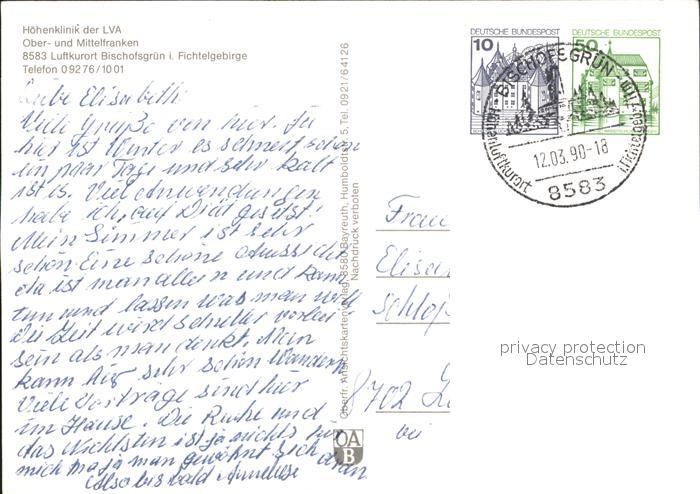 Höhenklinik der LVA
Ober- und Mittelfranken
8583 Luftkurort Bischofsgrün i. Fichtelgebirge
Telefon 09276/1001
Liebe Elisabeth
Viele Grüße von hier. Ja
hier ist Winter es schneit schon
ein paar Tage und sehr kalt
ist es. Viel Anwendungen
habe ich, auf Diät gesetst!
Mein Simmer ist sehr
schön. Eine schöne Aussicht
da ist man allein und kann
tun und lassen was man will
Die Zeit wird schneller vorbei
sein als man denkt. Man
kann hir sehr schön Wandern
Viele Vorträge sind hier
im Hause. Die Ruhe und
das Nichtstun ist ja nichts für
mich na ja man gewöhnt sich
dran.
Also bis bald Anneliese
Oberfr. Ansichtskartenverlag, 8580 Bayreuth, Humboldtstr. 5, Tel. 0921/64126
Nachdruck verboten
OA
B
DEUTSCHE BUNDESPOST
10
DEUTSCHE BUNDESPOST
50
BISCHOFSGRÜN
Höhenluftkurort
i.Fichtelgebirge
12.03.90-18
8583
Frau
Elisa
Schloß
8702
bei
privacy protection
Datenschutz